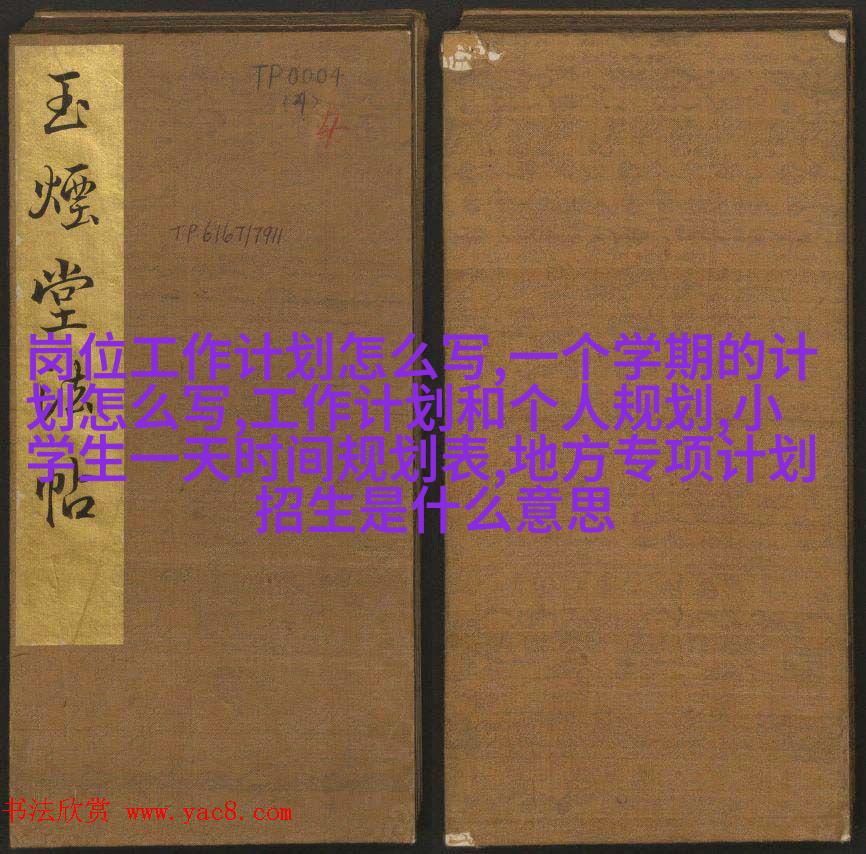 玉煙堂法帖
TP0004
(4)
4
TP6167/7911
岗位工作计划怎么写,一个学期的计
划怎么写,工作计划和个人规划,小
学生一天时间规划表,地方专项计划
招生是什么意思
书法欣赏 www.yac8.com